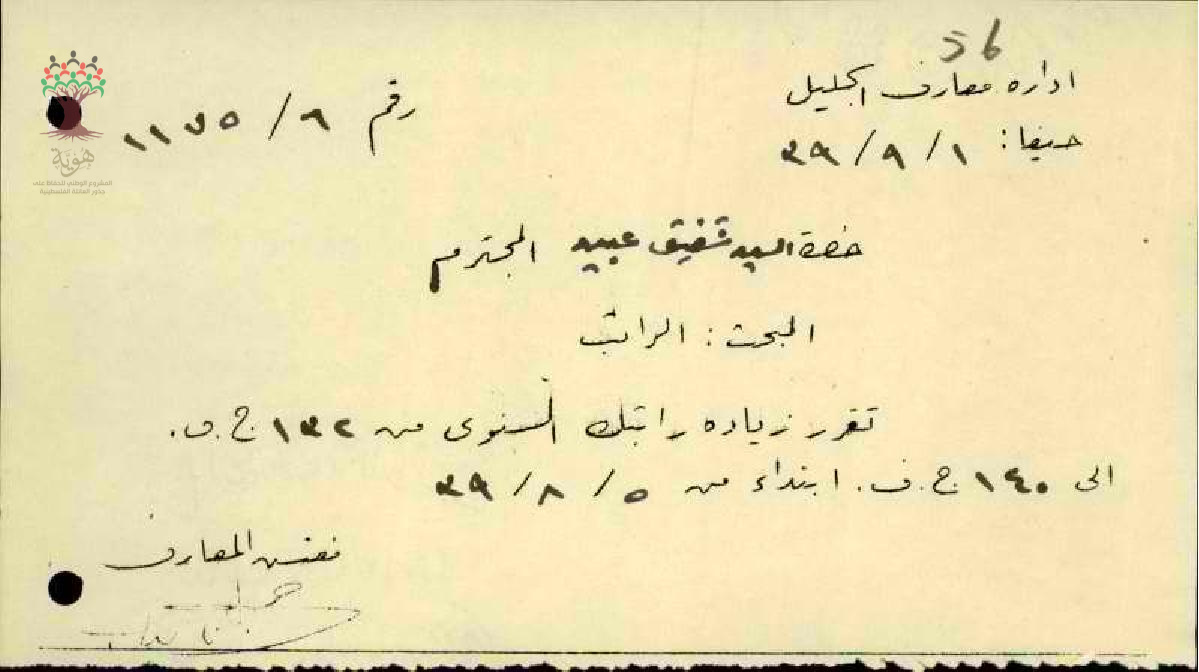 56
اداره معارف الجليل
رقم ٦ / ١١٧٥
حيفا: ١ / ٩ / ٣٩
هوية
المشروع الوطني للحفاظ على
جذور العائلة الفلسطينية
حضرة السيد شفيق عبيد المحترم
المبحث : الراتب
تقرر زياده راتبك السنوى من ١٣٢ ج.ف.
الى ١٤٠ ج.ف. ابتداء من ٥ / ٨ / ٣٩
مفتش المعارف